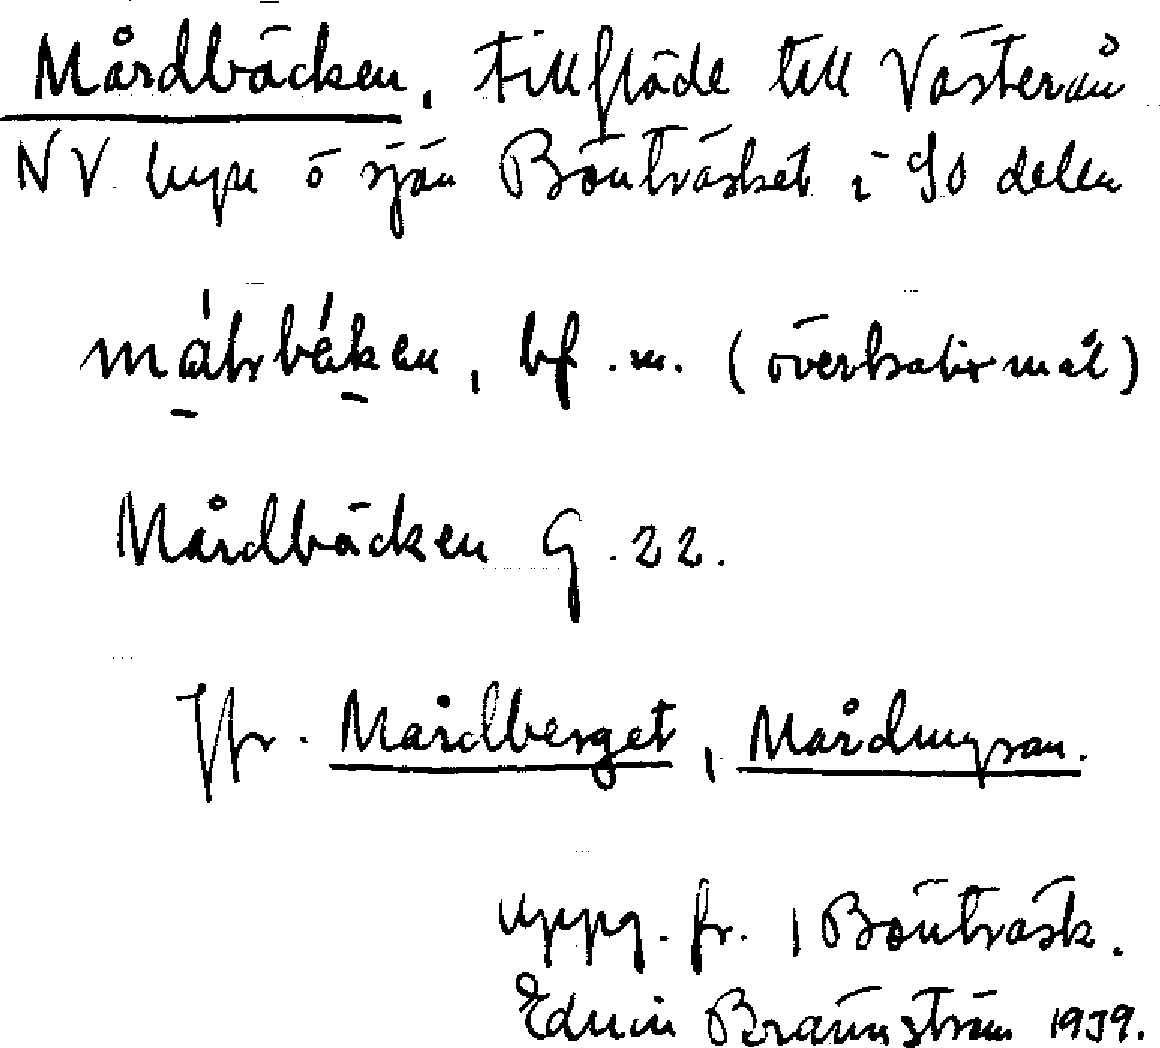 Mårdbäcken, tillflöde till Västerån
NV hypu ö sjön Böuträsket i SO delen
måhrbéken, bf. m. (överkalixmål)
Mårdbäcken G. 22.
Jfr. Mårdberget, Mårdmyran.
uppg. fr. Böuträsk.
Edvin Brännström 1939.